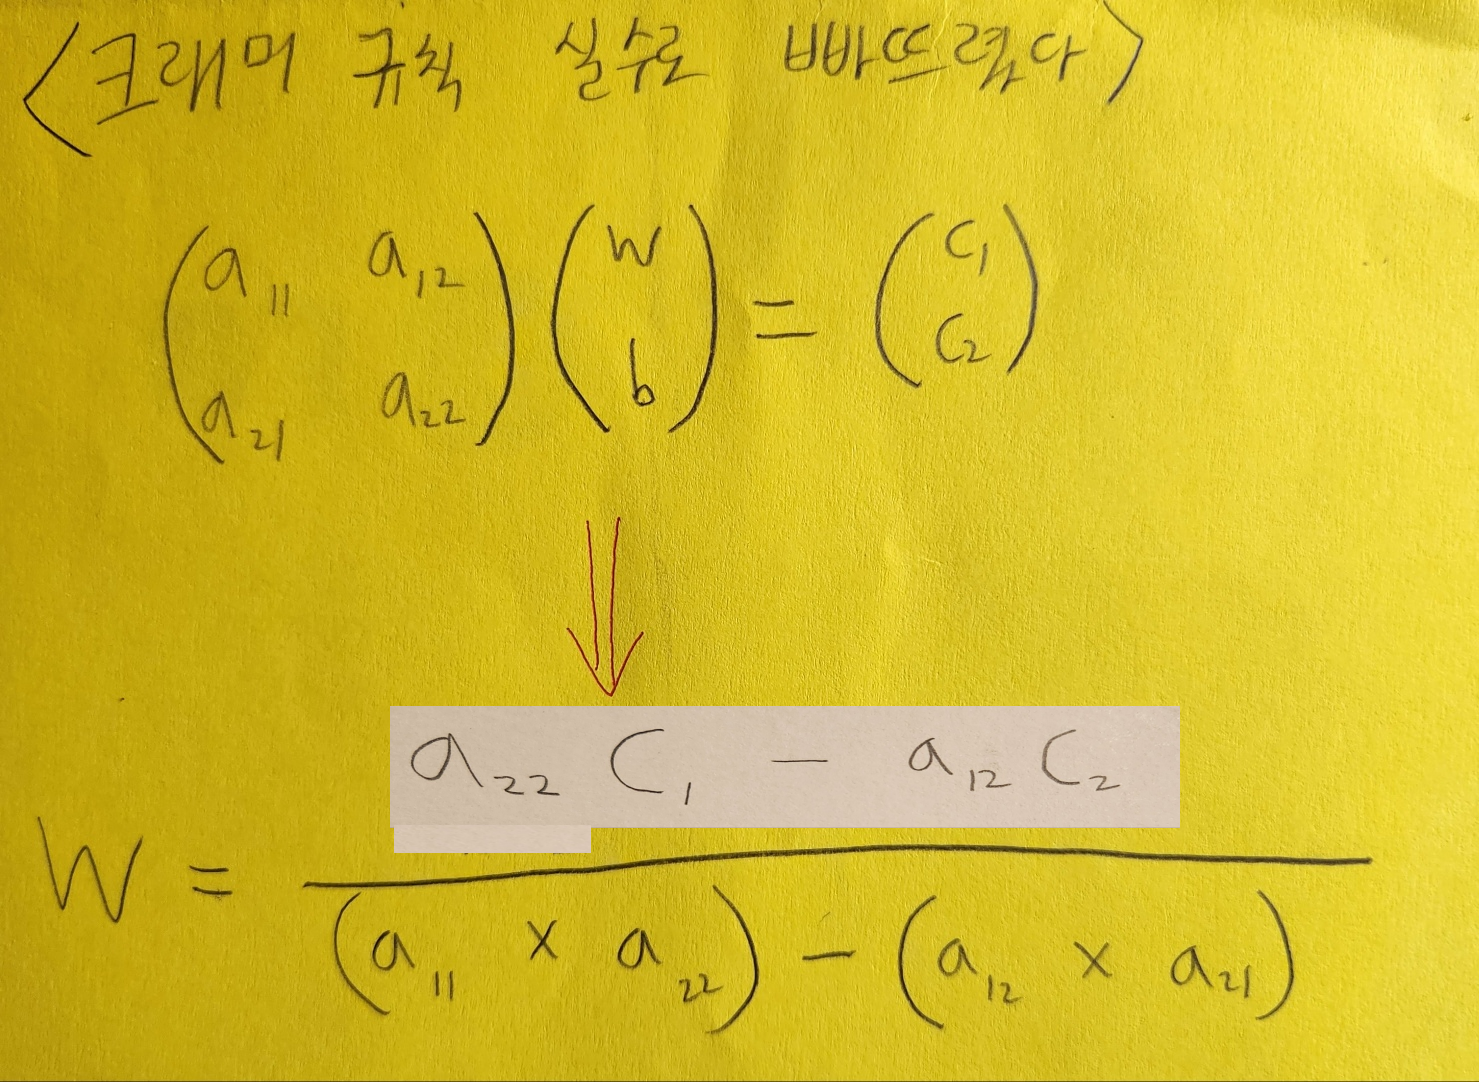 <크래머 규칙 실수로 빠뜨렸다>
(a₁₁ a₁₂) (w) = (c₁)
(a₂₁ a₂₂) (b) (c₂)
a₂₂ C₁ − a₁₂ C₂
W =
(a₁₁ × a₂₂) − (a₁₂ × a₂₁)